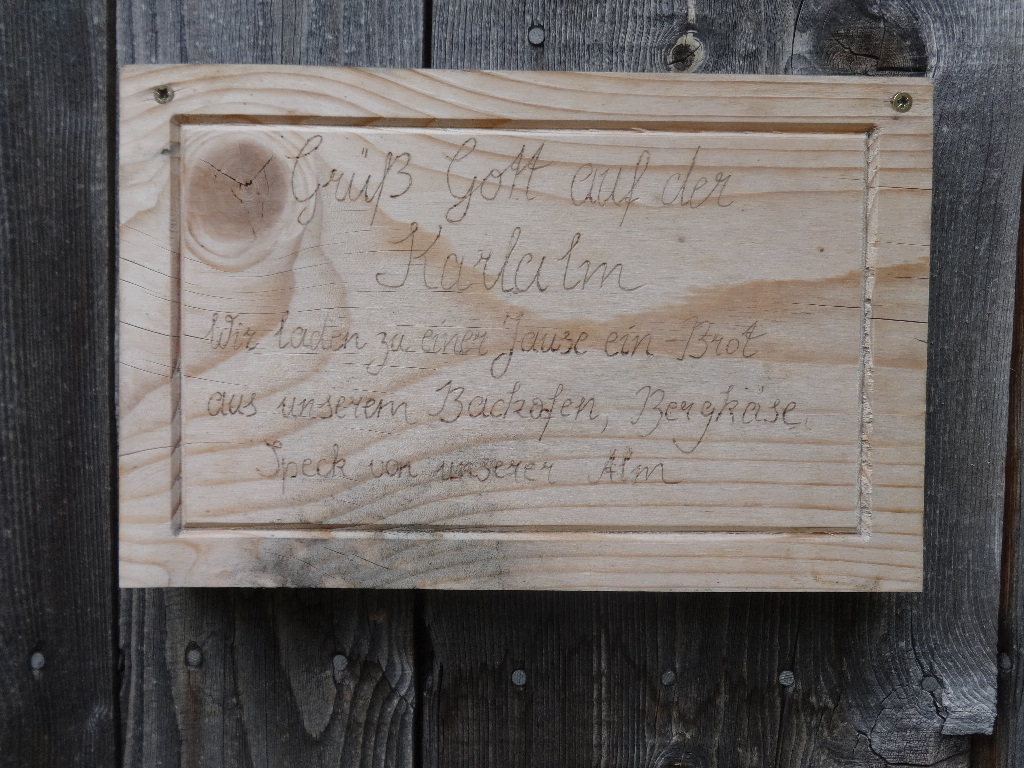 Grüß Gott auf der
Karlalm
Wir laden zu einer Jause ein - Brot
aus unserem Backofen, Bergkäse,
Speck von unserer Alm